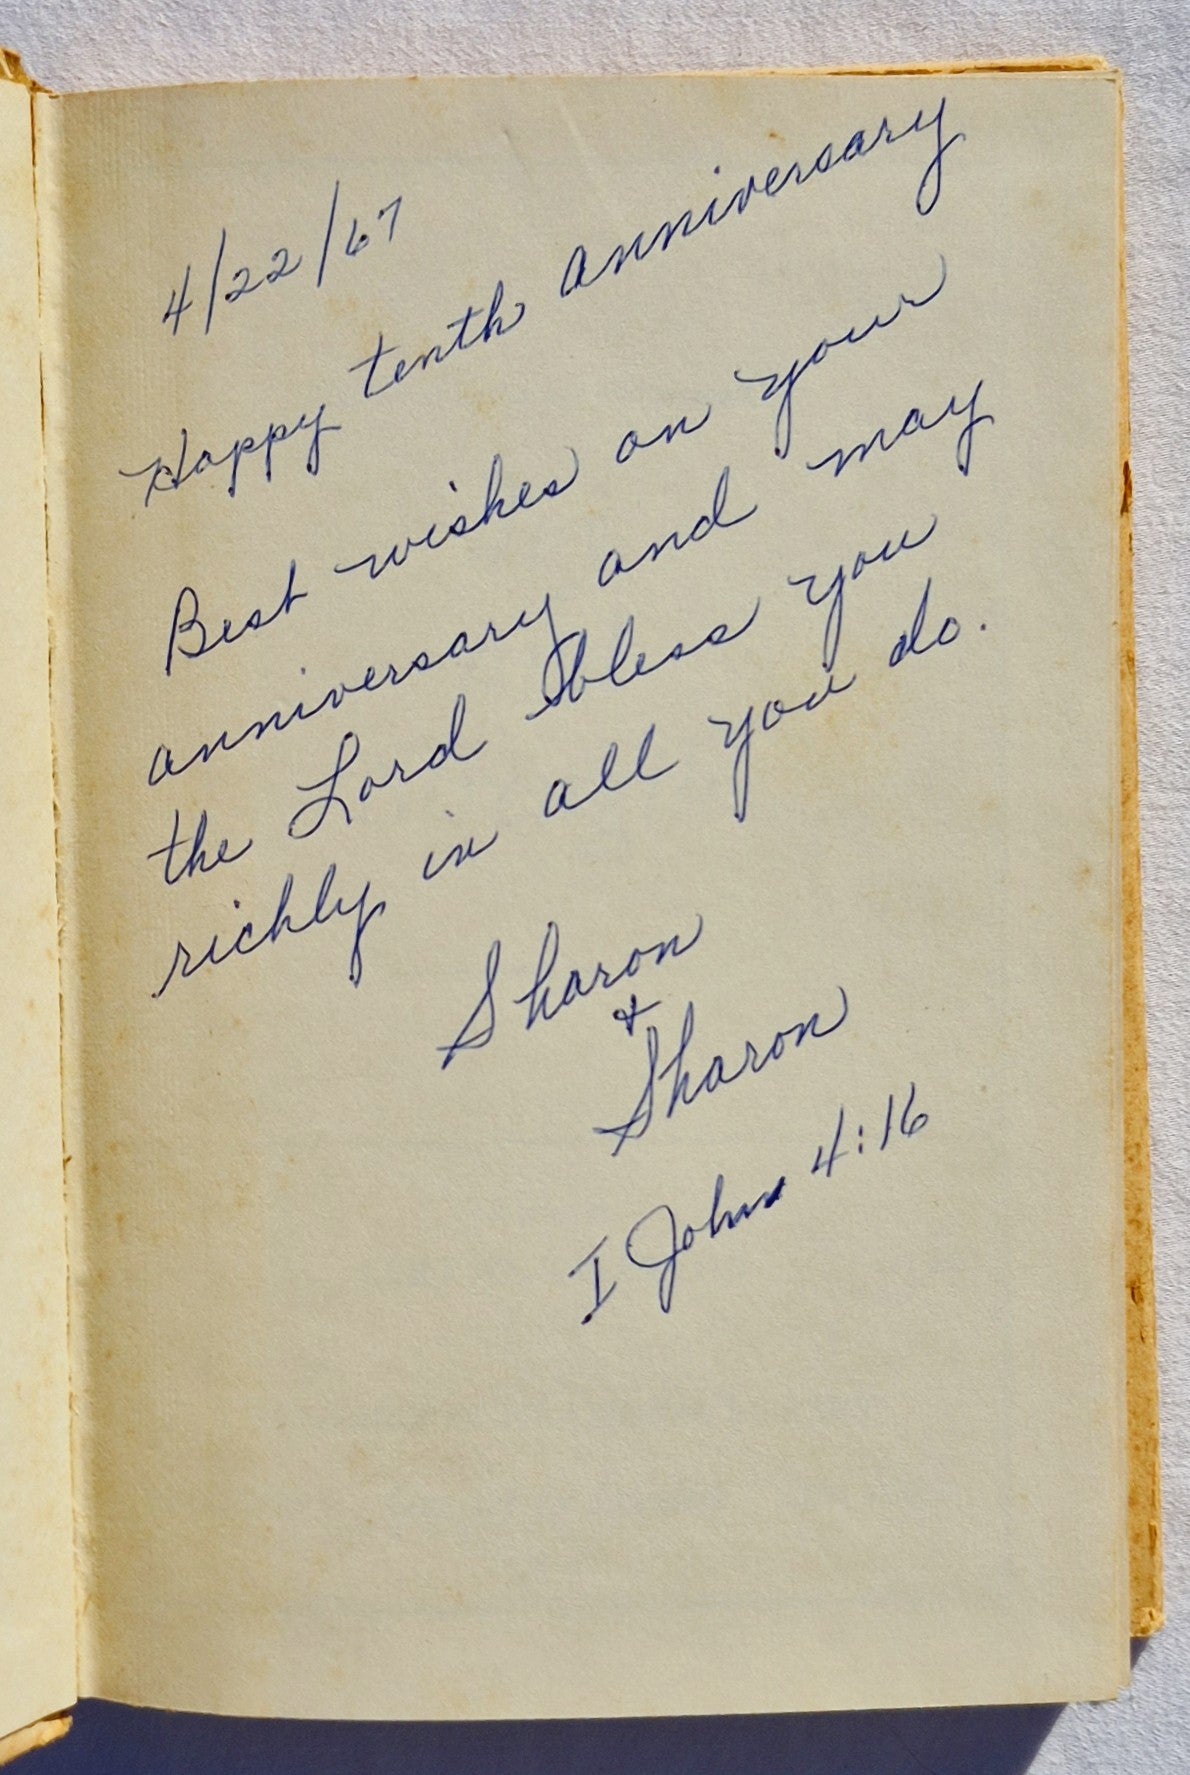 4/22/67
Happy tenth anniversary
Best wishes on your
anniversary and may
the Lord bless you
richly in all you do.
Sharon
&
Sharon
I John 4:16